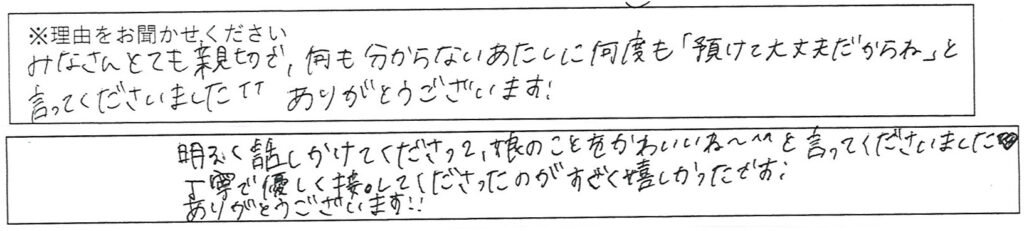 ※理由をお聞かせください
みなさんとても親切で、何も分からないあたしに何度も「預けて大丈夫だからね」と
言ってくださいました!! ありがとうございます!
明るく話しかけてくださって、娘のことをかわいいね〜^^と言ってくださいました
丁寧で優しく接してくださったのがすごく嬉しかったです!
ありがとうございます!!